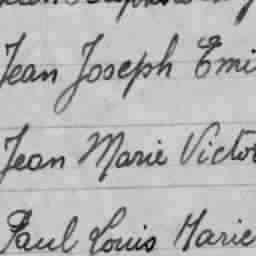 Jean Joseph Emi
Jean Marie Victo
Paul Louis Marie